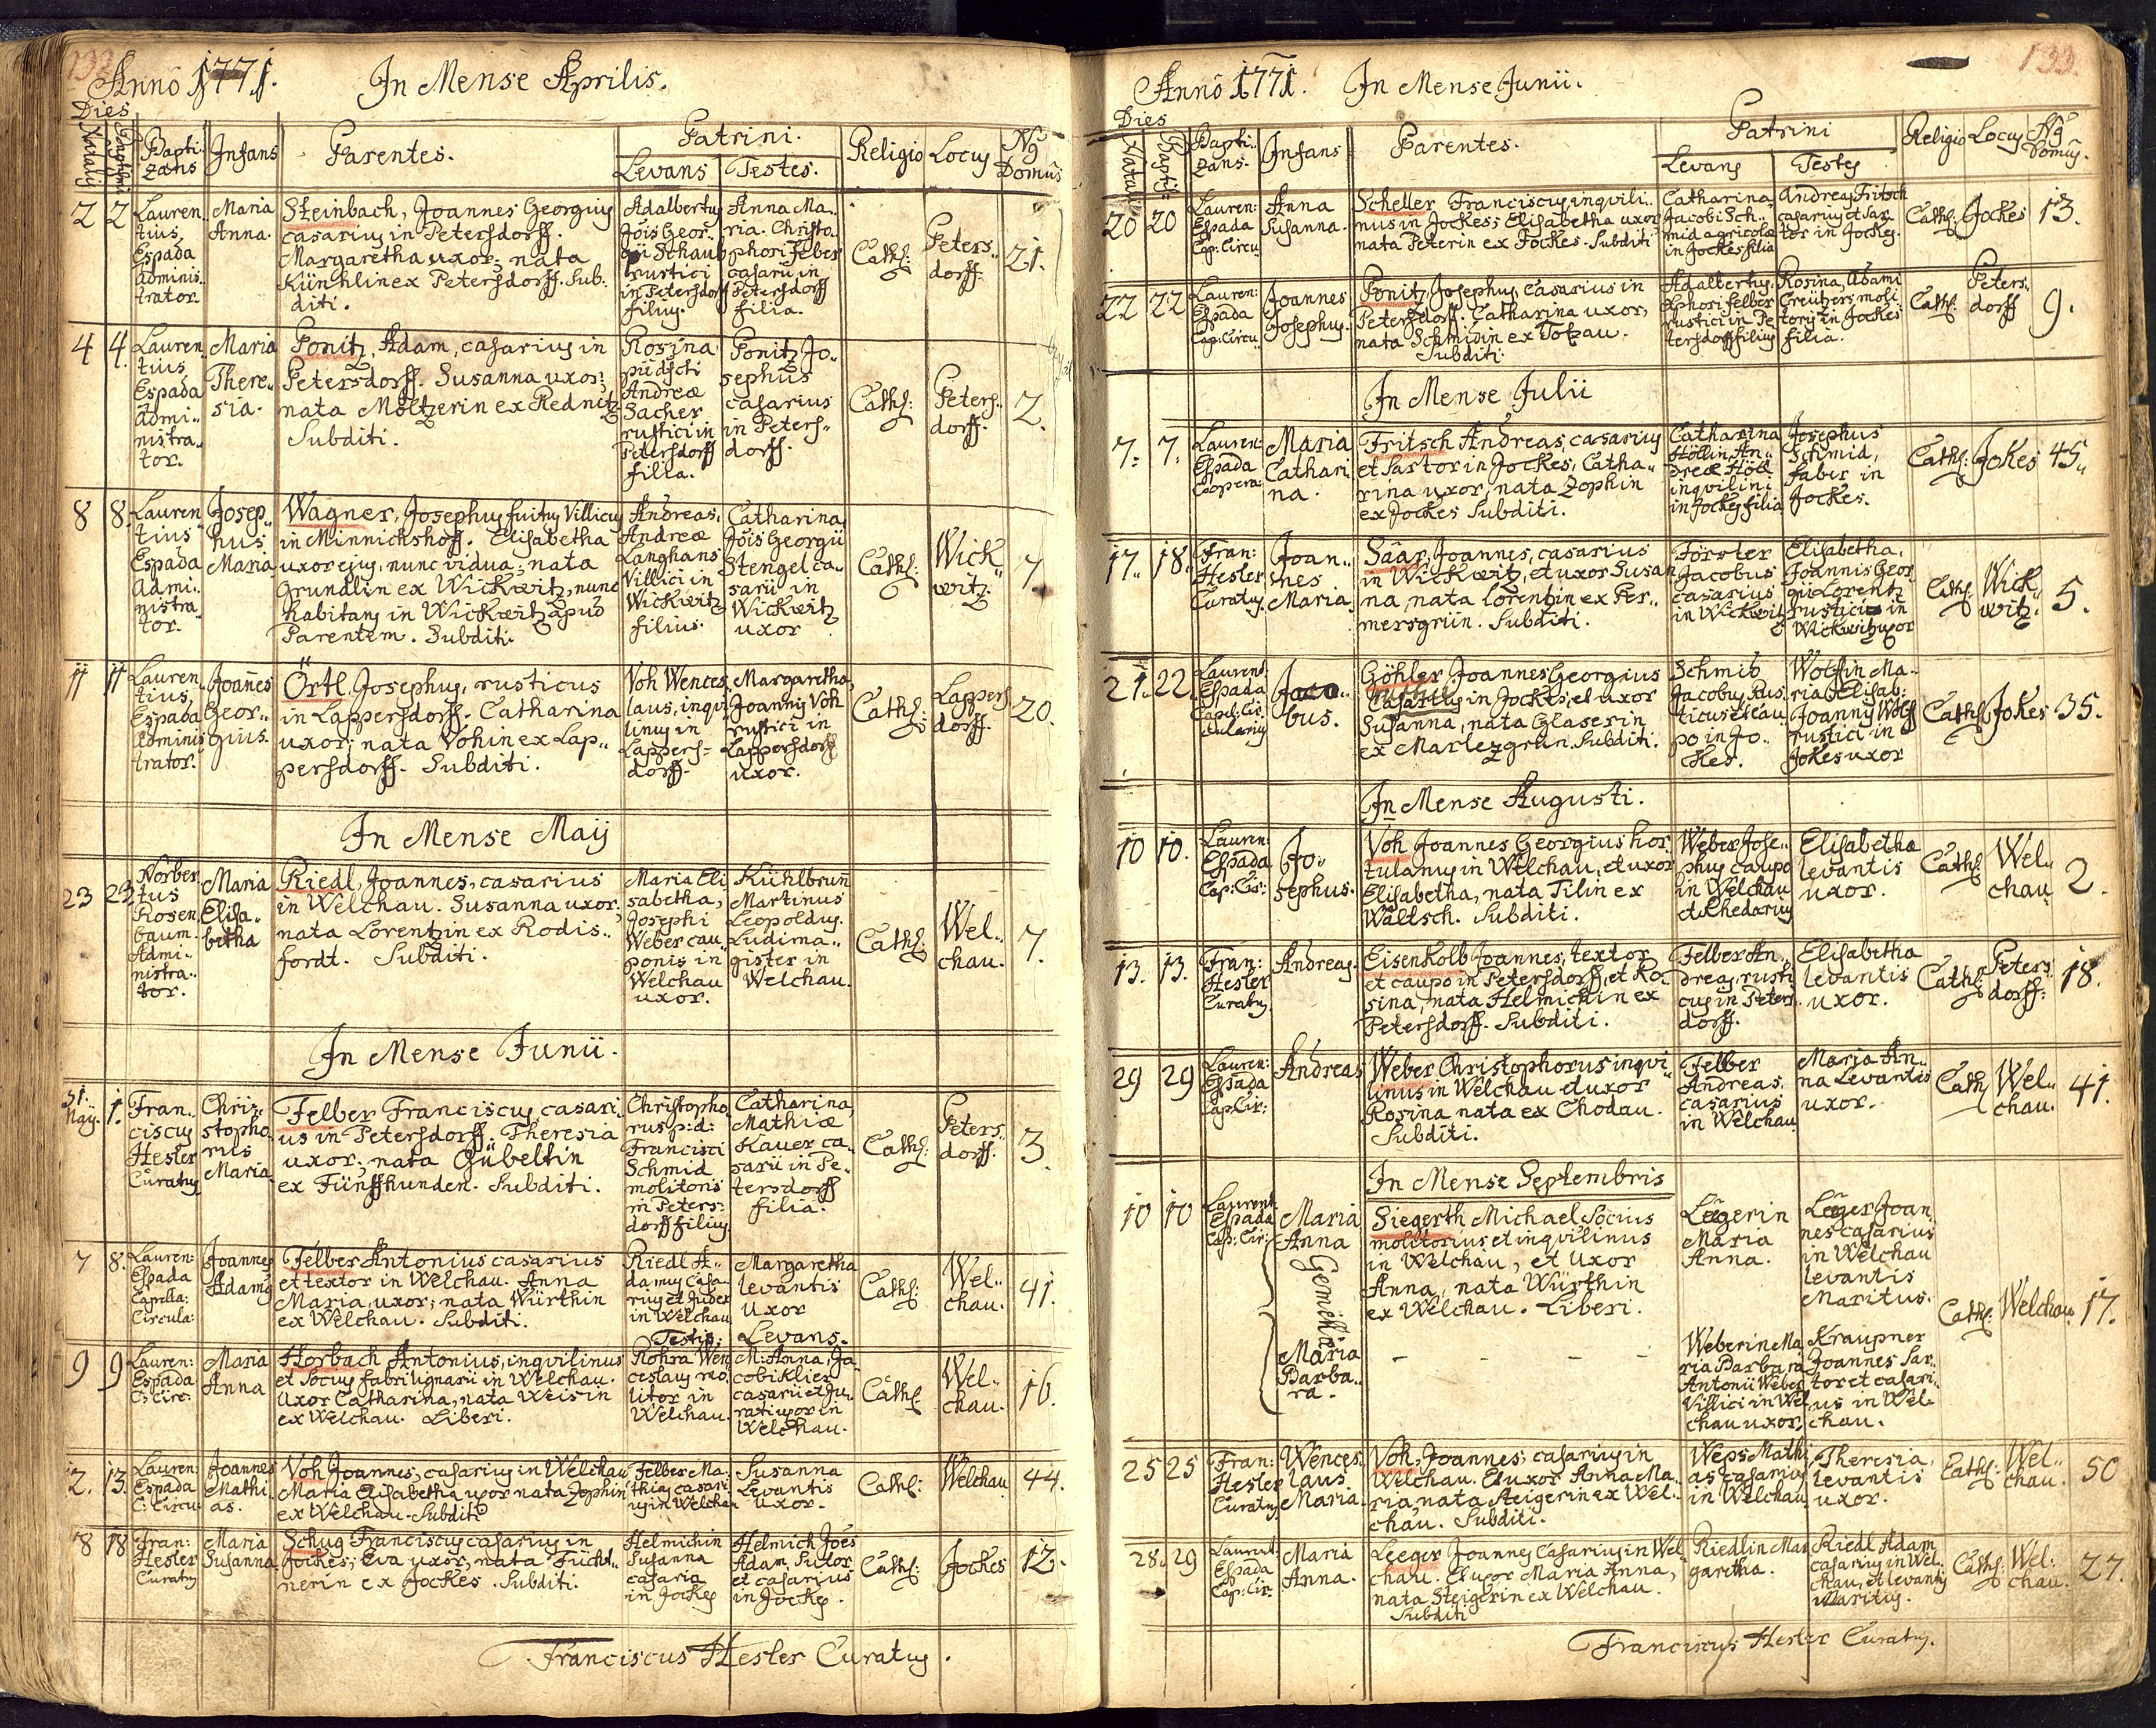 132
Annô 1771. In Mense Aprilis.
Dies
Natalis Baptismi Bapti- zans Infans Parentes. Patrini. Religio Locus Nº Domûs
Levans Testes.
2 2 Lauren- tius Espada Adminis- trator.
Maria Anna.
Steinbach, Joannes Georgius
casarius in Petersdorff.
Margaretha uxor; nata
Künhlin ex Petersdorff. Sub-
diti.
Adalbertus
Jôis Geor-
gii Schaub
rustici
in Petersdorff
filius.
Anna Ma-
ria. Christo-
phori Felber
casarii in
Petersdorff
filia.
Cath: Peters- dorff. 21.
4 4. Lauren- tius Espada Admi- nistra- tor.
Maria There- sia.
Ponitz, Adam, casarius in
Petersdorff. Susanna uxor;
nata Möltzerin ex Rednitz.
Subditi.
Rosina
pudicti
Andreæ
Sacher
rustici in
Petersdorff
filia.
Ponitz Jo-
sephus
casarius
in Peters-
dorff.
Cath: Peters- dorff. 2.
8 8. Lauren- tius Espada Admi- nistra- tor.
Josep- hus Maria
Wagner, Josephus fuitus Villicus
in Minnichshoff. Elisabetha
uxor ejus, nunc vidua; nata
Grundlin ex Wickwitz, nunc
habitans in Wickwitz apud
Parentem. Subditi.
Andreas,
Andreæ
Langhans
Villici in
Wickwitz
filius.
Catharina,
Jôis Georgii
Stengel ca-
sarii in
Wickwitz
uxor.
Cath: Wick- witz. 7.
11 11 Lauren- tius, Espada Adminis- trator.
Joañes Geor- gius.
Örtl, Josephus, rusticus
in Lappersdorff. Catharina
uxor; nata Vohin ex Lap-
persdorff. Subditi.
Voh Wences
laus, inqvi
linus in
Lappers-
dorff.
Margaretha,
Joannis Voh
rustici in
Lappersdorff
uxor.
Cath: Lappers dorff. 20.
In Mense Maij
23 23 Norber- tus Rosen- baum. Admi- nistra- tor.
Maria Elisa- betha
Riedl, Joannes, casarius
in Welchau. Susanna uxor;
nata Lorentzin ex Rodis-
fordt. Subditi.
Maria Eli
sabetha,
Josephi
Weber cau-
ponis in
Welchau
uxor.
Kühlbruñ
Martinus
Leopoldus.
Ludima-
gister in
Welchau.
Cath: Wel- chau. 7.
In Mense Junii.
31. Maij. 1. Fran- ciscus Hesler Curatus
Chris- stopho- rus Maria
Felber Franciscus casari-
us in Petersdorff. Theresia
uxor; nata Gübeltin
ex Fünffhunden. Subditi.
Christopho
rus p:d:
Francisci
Schmid
molitoris
in Peters-
dorff filius
Catharina,
Mathiæ
Hauer ca-
sarii in Pe-
tersdorff
filia.
Cath: Peters- dorff. 3.
7 8. Lauren: Espada Capella: Circula:
Joannes Adamus
Felber Antonius casarius
et textor in Welchau. Anna
Maria uxor; nata Würthin
ex Welchau. Subditi.
Riedl A-
damus casa-
rius et Judex
in Welchau
Margaretha
levantis
uxor
Cath: Wel- chau. 41.
Testis: Levans.
9 9 Lauren: Espada C: Circ:
Maria Anna
Horbach Antonius, inqvilinus
et Socius fabri lignarii in Welchau.
Uxor Catharina, nata Weisin
ex Welchau. Liberi.
Rohra Wen
ceslaus mo-
litor in
Welchau.
M: Anna, Ja
cobi Klier
casarii et Ju-
rati uxor in
Welchau.
Cath: Wel- chau. 16.
12. 13. Lauren: Espada C: Circu:
Joannes Mathi- as.
Voh Joannes, casarius in Welchau
Maria Elisabetha uxor nata Zophin
ex Welchau. Subditi
Felber Ma-
thias casari-
us in Welchau
Susanna
Levantis
uxor.
Cath: Welchau 44.
18 18 Fran: Hesler Curatus
Maria Susanna
Schug Franciscus casarius in
Jockes; Eva uxor; nata Fücht-
nerin ex Jockes. Subditi.
Helmichin
Susanna
casaria
in Jockes
Helmich Joës
Adam, Sutor
et casarius
in Jockes.
Cath: Jockes 12.
Franciscus Hesler Curatus.
133.
Annô 1771. In Mense Junii.
Dies
Natalis Baptis: Bapti- zans. Infans Parentes. Patrini Religio Locus Nº Domûs.
Levans Testes
20 20 Lauren: Espada Cap: Circu:
Anna Susanna.
Scheller Franciscus inqvili-
nus in Jockes; Elisabetha uxor
nata Peterin ex Jockes. Subditi
Catharina,
Jacobi Sch-
mid agricolæ
in Jockes filia
Andreas Fritsch
casarius et Sar
tor in Jockes.
Cath: Jockes 13.
22 22 Lauren: Espada Cap: Circu:
Joannes Josephus.
Ponitz, Josephus, casarius in
Petersdorff. Catharina uxor,
nata Schmidin ex Totzau.
Subditi.
Adalbertus,
phori Felber
rustici in Pe
tersdorff filius
Rosina, Adami
Creützers moli-
toris in Jockes
filia.
Cath: Peters- dorff 9.
In Mense Julii
7. 7. Lauren: Espada Coopera:
Maria Cathari- na.
Fritsch Andreas, casarius
et Sartor in Jockes, Catha-
rina uxor, nata Zophin
ex Jockes Subditi.
Catharina
Höllin, An-
dreæ Höll
inqvilini
in Jockes filia
Josephus
Schmid,
faber in
Jockes.
Cath: Jokes 45.
17. 18. Fran: Hesler Curatus.
Joan- nes Maria.
Säâr, Joannes, casarius
in Wickwitz, et uxor Susan
na, nata Lorentzin ex Fer-
mersgrün. Subditi.
Förster
Jacobus
casarius
in Wickwitz
Elisabetha,
Joannis Geor
gii Lorentz
rustici in
Wickwitz uxor
Cath: Wick- witz. 5.
21. 22. Laurent: Espada Capel: Cir- cularis
Jaco- bus.
Göhler, Joannes Georgius
rusticus
Casarius in Jockes, et uxor
Susanna, nata Glaserin
ex Marlezgrün. Subditi.
Schmid
Jacobus, Rus
ticus et cau
po in Jo-
ckes.
Wolfin Ma-
ria Elisab:
Joannis Wolf
rustici in
Jokes uxor
Cath: Jokes 35.
In Mense Augusti.
10 10. Lauren: Espada Cap: Cir:
Jo- sephus.
Voh Joannes Georgius hor-
tulanus in Welchau, et uxor
Elisabetha, nata Tilin ex
Waltsch. Subditi.
Weber Jose-
phus caupo
in Welchau
et Rhedarius
Elisabetha
levantis
uxor.
Cath: Wel- chau. 2.
13. 13. Fran: Hesler Curatus
Andreas.
Eisenkolb Joannes, textor
et caupo in Petersdorff, et Ro-
sina, nata Helmichin ex
Petersdorff. Subditi.
Felber An-
dreas, rusti
cus in Peters-
dorff.
Elisabetha
levantis
uxor.
Cath: Peters- dorff: 18.
29 29 Lauren: Espada Cap: Cir:
Andreas
Weber Christophorus inqvi-
linus in Welchau et uxor
Rosina nata ex Chodau.
Subditi.
Felber
Andreas,
casarius
in Welchau
Maria An-
na Levantis
uxor.
Cath: Wel- chau. 41.
In Mense Septembris
10 10 Laurent: Espada Cap: Cir:
Maria Anna
Gemellæ
Siegerth Michael Socius
molitorius et inqvilinus
in Welchau, et Uxor
Anna, nata Würthin
ex Welchau. Liberi.
Leegerin
Maria
Anna.
Leeger Joan
nes casarius
in Welchau
levantis
Maritus.
Cath: Welchau. 17.
Maria Barba- ra.
- - - -
Weberin Ma
ria Barbara
Antonii Weber
Villici in Wel
chau uxor.
Kraupner
Joannes Sar-
tor et casari-
us in Wel-
chau.
25 25 Fran: Hesler Curatus
Wences- laus Maria.
Voh, Joannes, casarius in
Welchau. Et uxor Anna Ma-
ria, nata Steigerin ex Wel-
chau. Subditi.
Weps Mathi
as casarius
in Welchau
Theresia,
levantis
uxor.
Cath: Wel- chau. 50
28. 29 Laurent: Espada Cap: Cir:
Maria Anna.
Leeger Joannes Casarius in Wel-
chau. Et uxor Maria Anna,
nata Steigerin ex Welchau.
Subditi
Riedlin Mar
garetha.
Riedl Adam
casarius in Wel-
chau, et levantis
maritus.
Cath: Wel- chau. 27.
Franciscus Hesler Curatus.